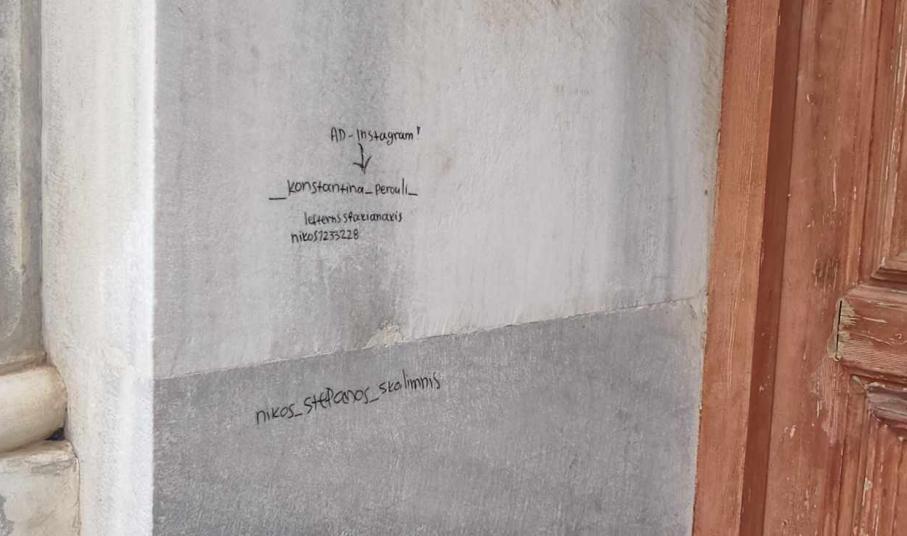 AD-Instagram'
_konstantina_perouli_
lefterhs sfakianakis
nikos7233228
nikos_stefanos_skalimnis